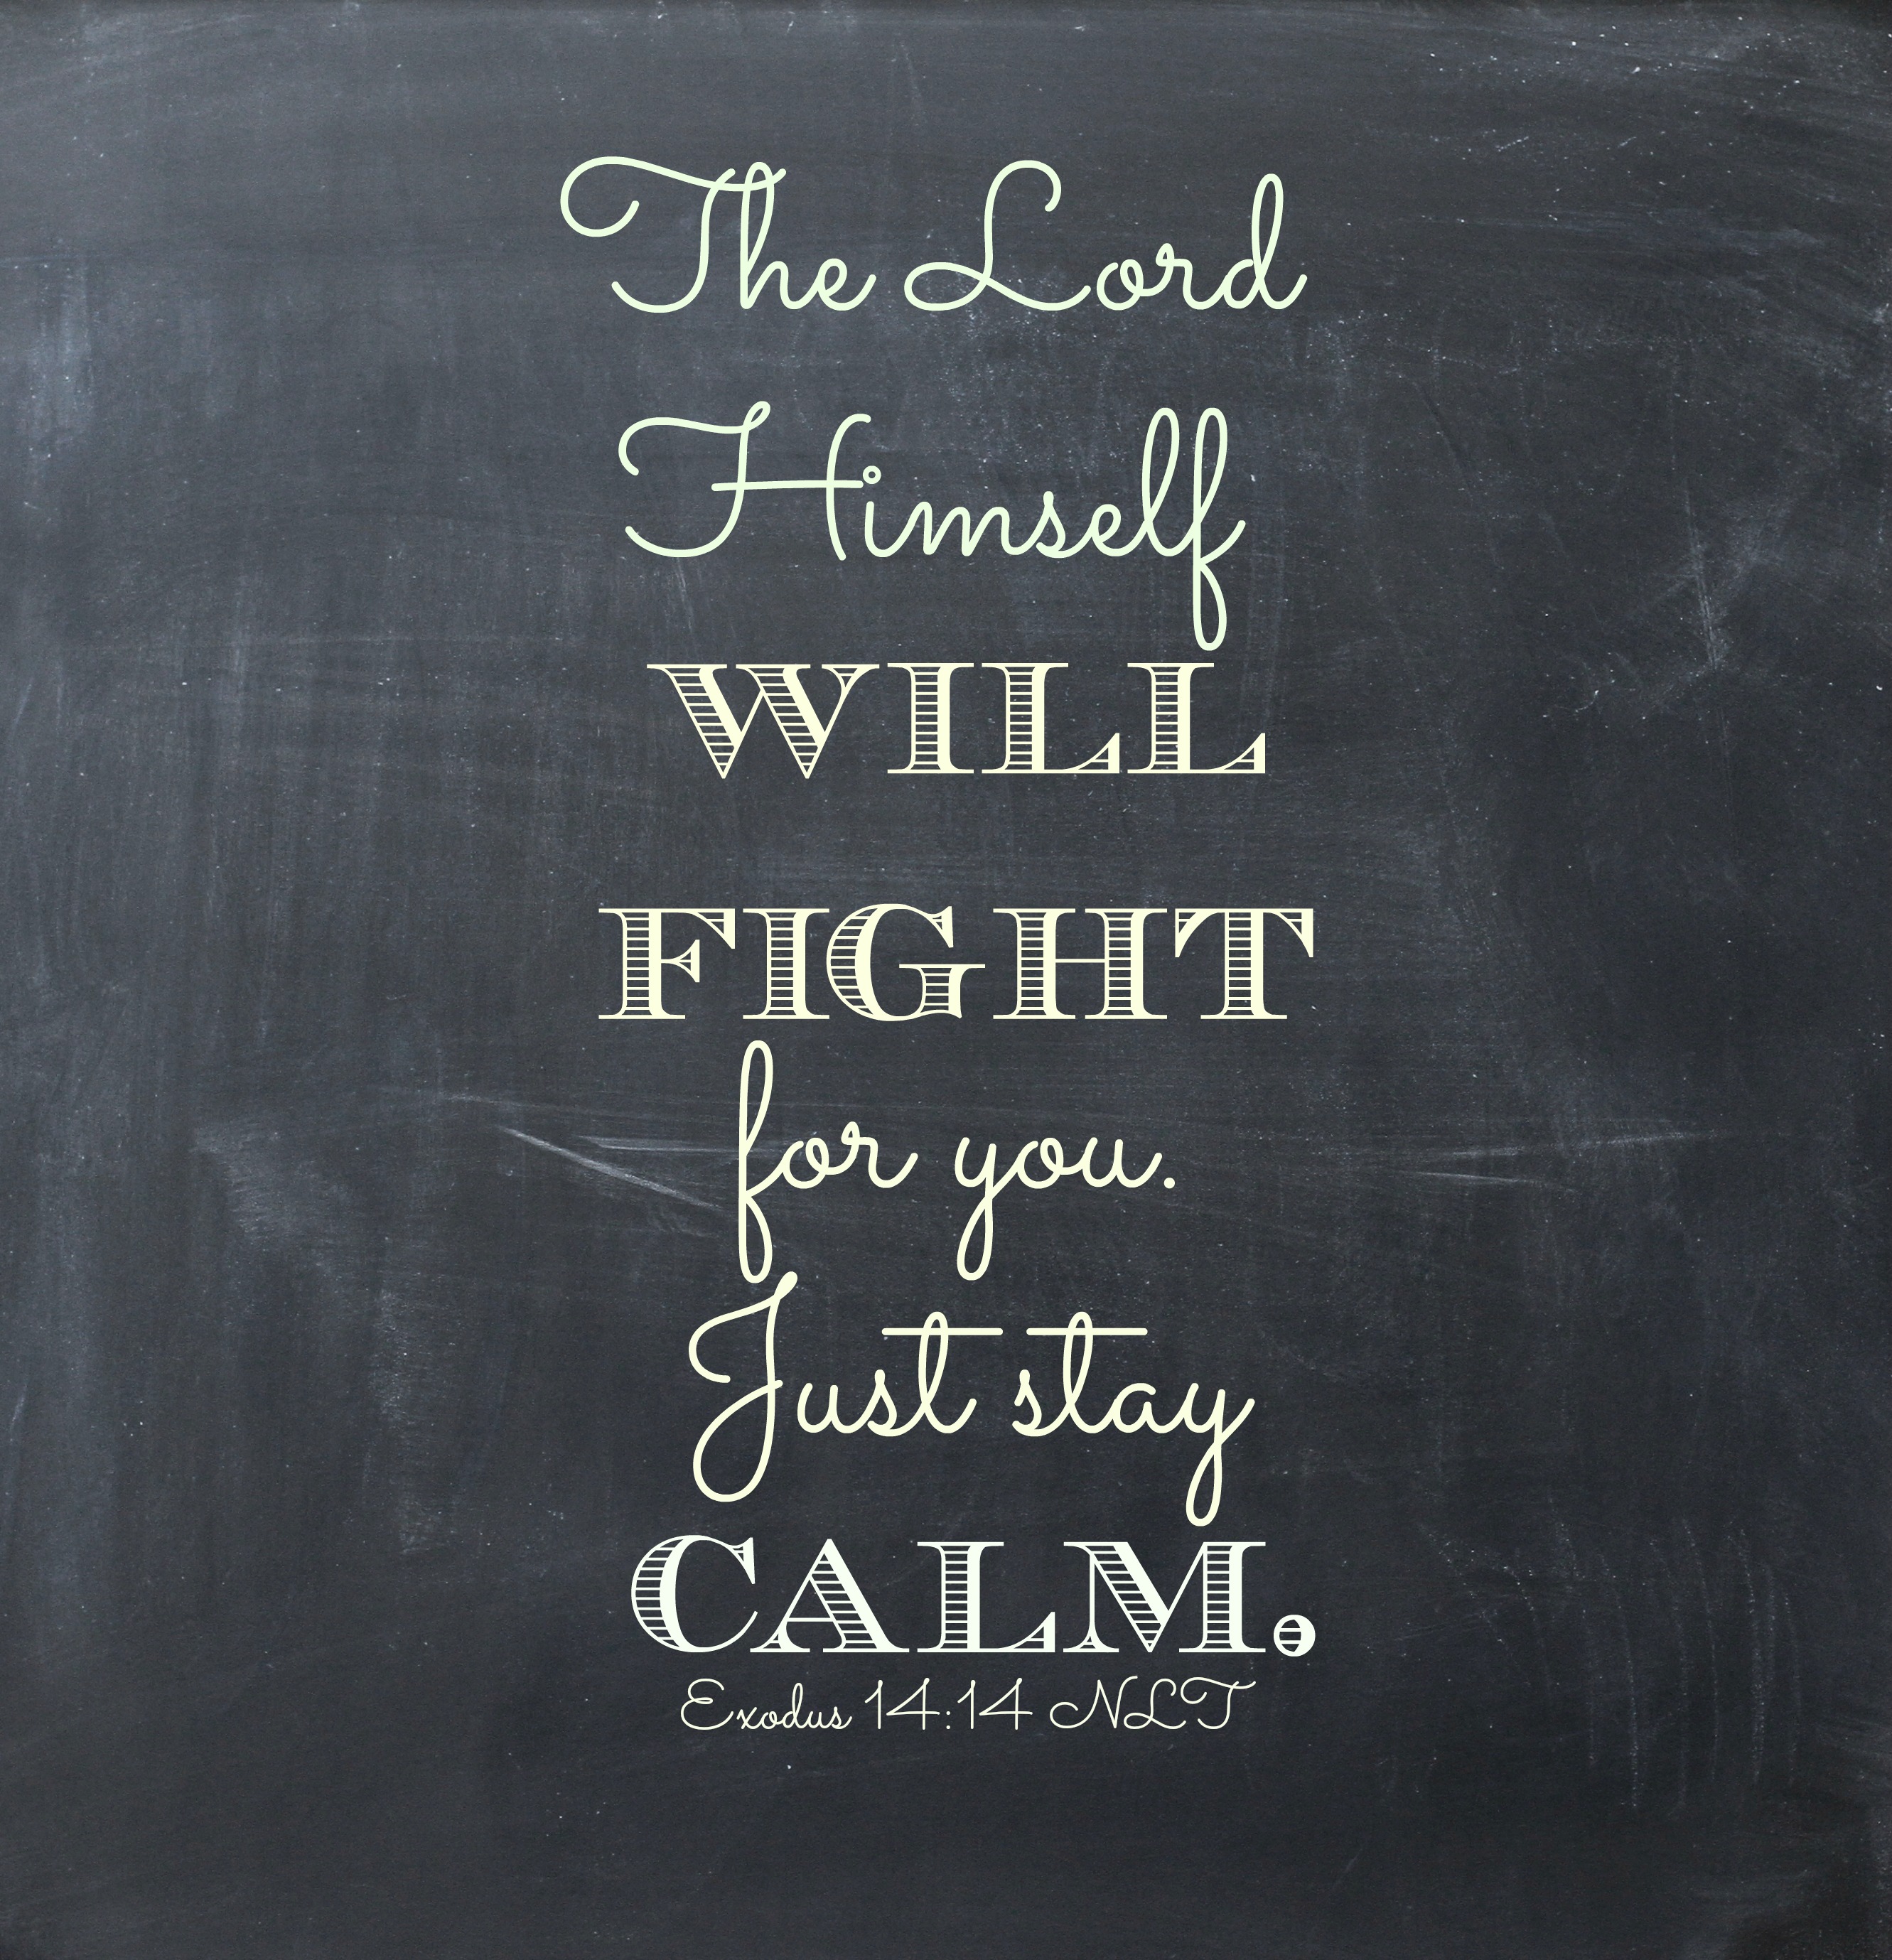 The Lord
Himself
WILL
FIGHT
for you.
Just stay
CALM.
Exodus 14:14 NLT